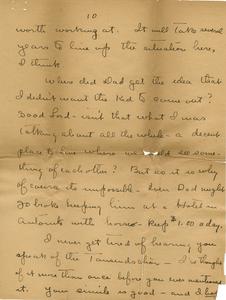 10
worth working at. It will take several
years to line up the situation here,
I think.
Where did Dad get the idea that
I didn't want the Kid to come out?
Good Lord - isn't that what I was
talking about all the while - a decent
place to live where we could see some-
thing of each other? But as it is now
of course its impossible - even Dad might
go broke keeping him at a Hotel in
with horse - Keep $1.00 a day.
I never get tired of hearing you
speak of the - I thought
of it more than once before you ever mentioned
it. Your simile is good - and I